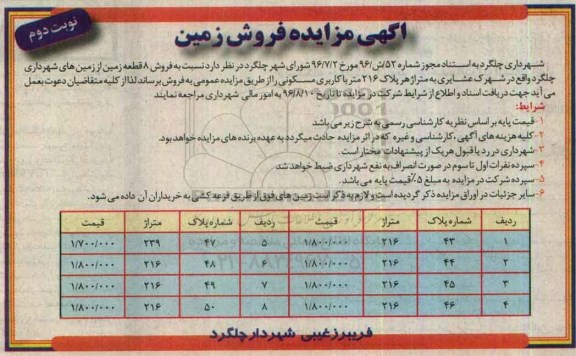 نوبت دوم
آگهی مزایده فروش زمین
شهرداری چلگرد به استناد مجوز شماره ۵۲/ش/۹۶ مورخ ۹۶/۷/۲ شورای شهر چلگرد در نظر دارد نسبت به فروش ۸ قطعه زمین از زمین های شهرداری
چلگرد واقع در شهرک عشایری به متراژ هر پلاک ۲۱۶ متر با کاربری مسکونی را از طریق مزایده عمومی به فروش برساند لذا از کلیه متقاضیان دعوت بعمل
می آید جهت دریافت اسناد و اطلاع از شرایط شرکت در مزایده تا تاریخ ۹۶/۸/۱۰ به امور مالی شهرداری مراجعه نمایند
شرایط:
۱- قیمت پایه بر اساس نظریه کارشناسی رسمی به شرح زیر می باشد
۲- کلیه هزینه های آگهی، کارشناسی و غیره که در اثر مزایده حادث میگردد به عهده برنده های مزایده خواهد بود.
۳- شهرداری در رد یا قبول هریک از پیشنهادات مختار است.
۴- سپرده نفرات اول تا سوم در صورت انصراف به نفع شهرداری ضبط خواهد شد
۵- سپرده شرکت در مزایده به مبلغ ۵٪ قیمت پایه می باشد.
۶- سایر جزئیات در اوراق مزایده ذکر گردیده است و لازم به ذکر است زمین های فوق از طریق قرعه کشی به خریداران آن داده می شود.
ردیف شماره پلاک متراژ قیمت ردیف شماره پلاک متراژ قیمت
۱ ۴۳ ۲۱۶ ۱/۸۰۰/۰۰۰ ۵ ۴۷ ۲۳۹ ۱/۷۰۰/۰۰۰
۲ ۴۴ ۲۱۶ ۱/۸۰۰/۰۰۰ ۶ ۴۸ ۲۱۶ ۱/۸۰۰/۰۰۰
۳ ۴۵ ۲۱۶ ۱/۸۰۰/۰۰۰ ۷ ۴۹ ۲۱۶ ۱/۸۰۰/۰۰۰
۴ ۴۶ ۲۱۶ ۱/۸۰۰/۰۰۰ ۸ ۵۰ ۲۱۶ ۱/۸۰۰/۰۰۰
فریبرز غیبی شهردار چلگرد